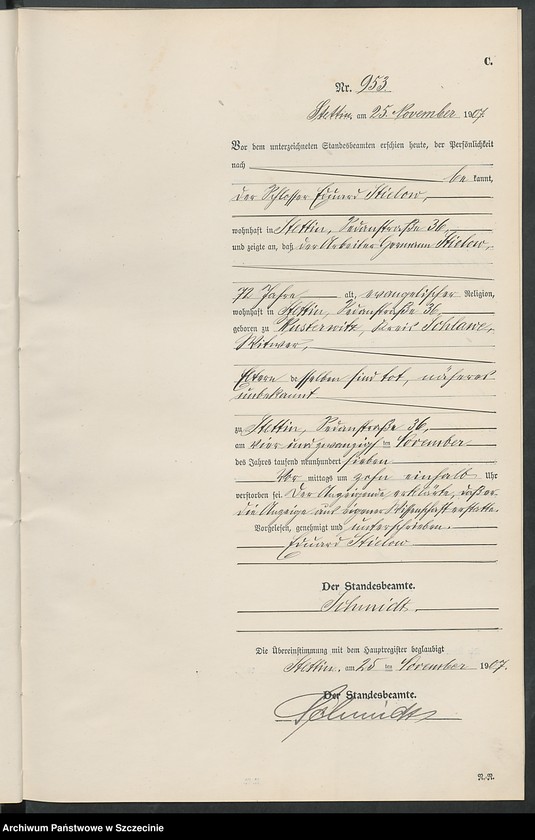 C.
Nr. 953.
Stettin, am 25. November 1907.
Vor dem unterzeichneten Standesbeamten erschien heute, der Persönlichkeit
nach
be kannt,
der Schlosser Eduard Stielow,
wohnhaft in Stettin, Sedanstraße 36,
und zeigte an, daß der Arbeiter Hermann Stielow,
72 Jahre alt, evangelischer Religion,
wohnhaft in Stettin, Sedanstraße 36,
geboren zu Kusterwitz, Kreis Schlawe,
Witwer,
Eltern desselben sind tot, näheres
unbekannt
zu Stettin, Sedanstraße 36,
am vier und zwanzigsten November
des Jahres tausend neunhundert sieben
Vor mittags um zehn einhalb Uhr
verstorben sei. Der Anzeigende erklärte, daß er
die Anzeige aus eigener Wissenschaft erstatte.
Vorgelesen, genehmigt und unterschrieben.
Eduard Stielow
Der Standesbeamte.
Schmidt.
Die Übereinstimmung mit dem Hauptregister beglaubigt
Stettin, am 25 ten November 1907.
Der Standesbeamte.
Schmidt
N.-N.
Archiwum Państwowe w Szczecinie